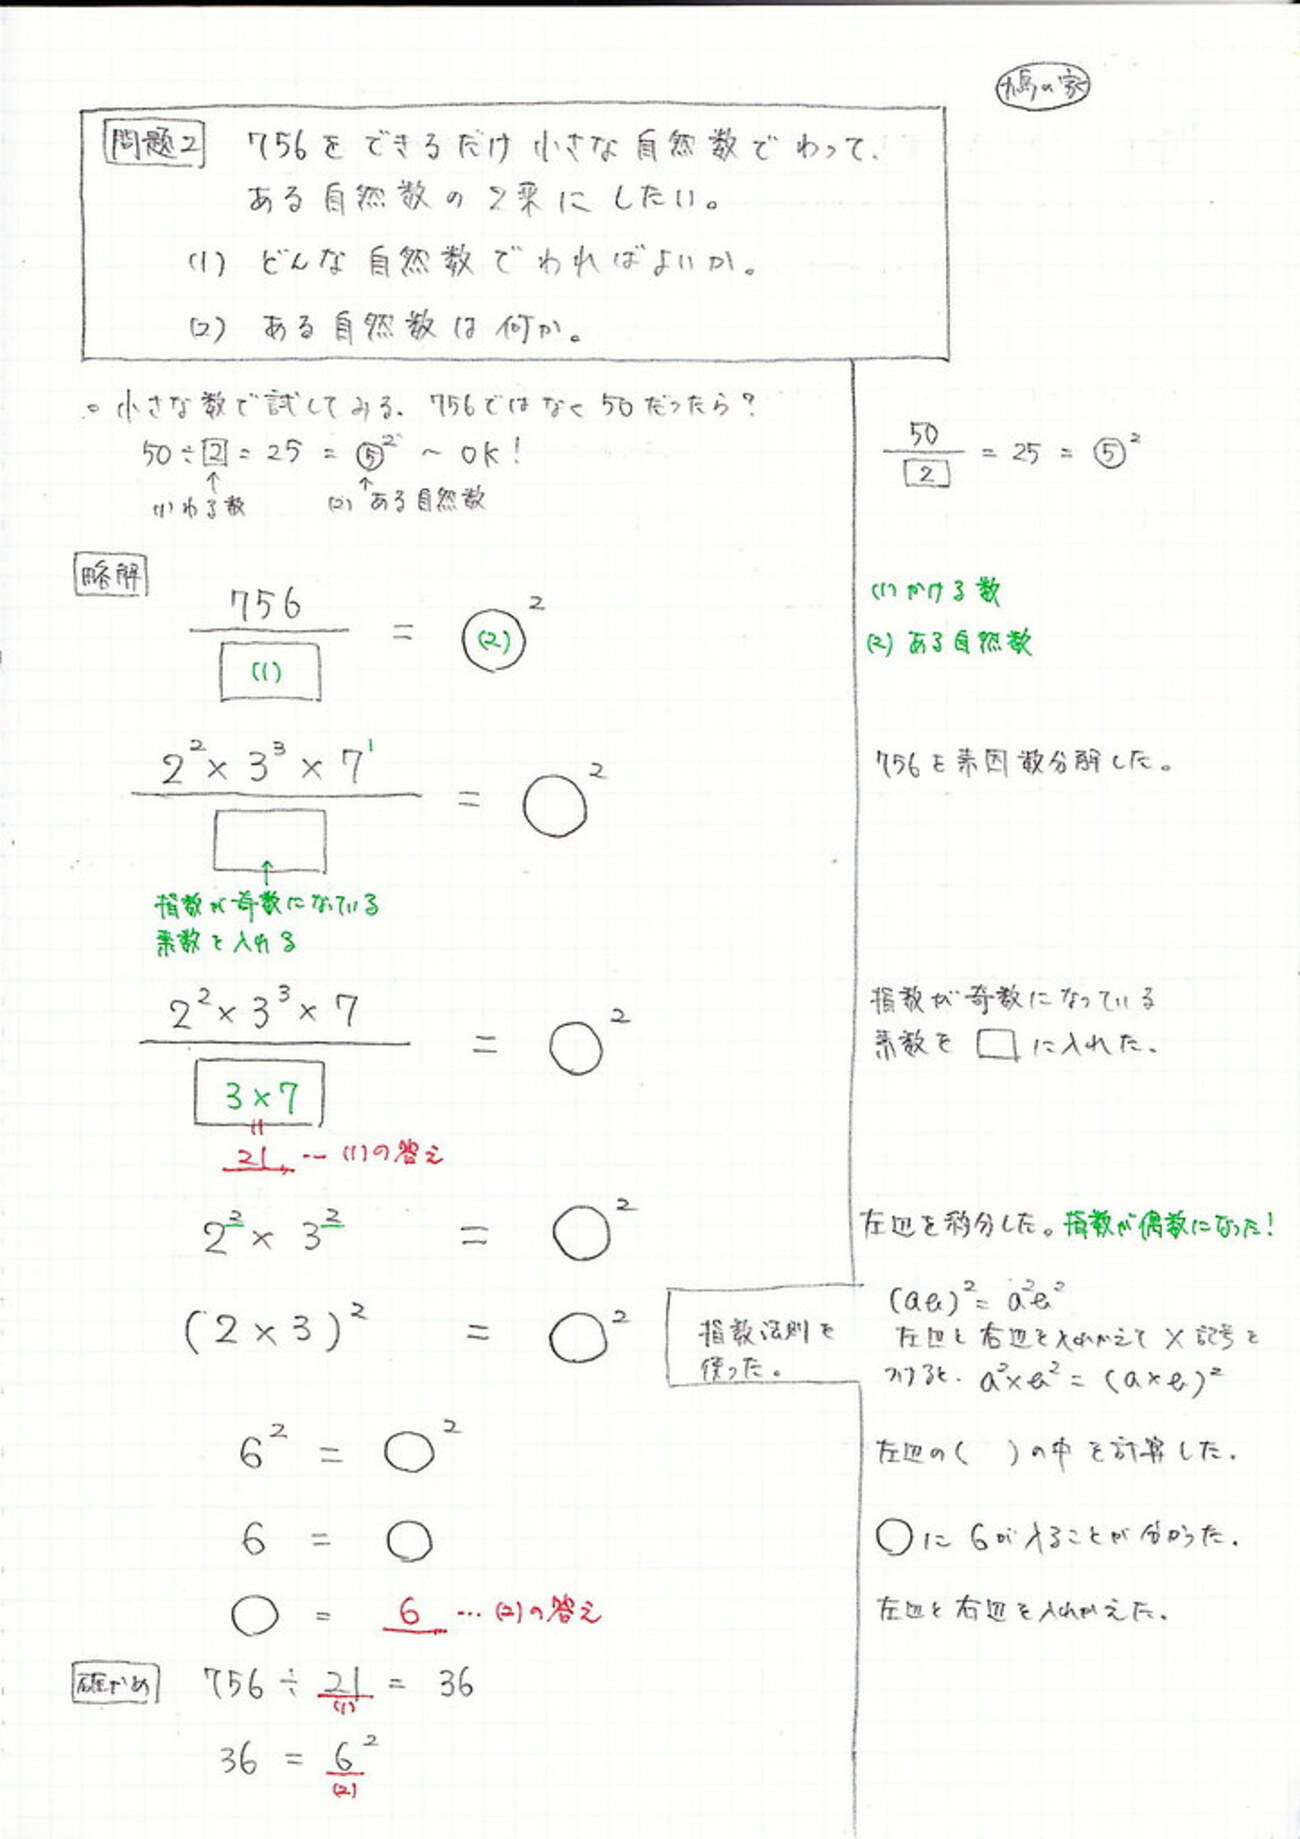 鳩の家
問題2 756をできるだけ小さな自然数でわって、
ある自然数の2乗にしたい。
(1) どんな自然数でわればよいか。
(2) ある自然数は何か。
○ 小さな数で試してみる。756ではなく50だったら?
50÷2=25=⑤² ～ OK!
↑ ↑
(1)わる数 (2)ある自然数
50/2 = 25 = ⑤²
略解
756/(1) = (2)²
(1)かける数
(2)ある自然数
2²×3³×7¹/□ = ○²
756を素因数分解した。
↑
指数が奇数になっている
素数を入れる
2²×3³×7/3×7 = ○²
指数が奇数になっている
素数を□に入れた。
"
21 … (1)の答え
2²×3² = ○²
左辺を約分した。指数が偶数になった!
(2×3)² = ○²
指数法則を
使った。
(ab)²=a²b²
左辺と右辺を入れかえて×記号を
つけると、a²×b²=(a×b)²
6² = ○²
左辺の( )の中を計算した。
6 = ○
○に6が入ることが分かった。
○ = 6 … (2)の答え
左辺と右辺を入れかえた。
確かめ 756÷21=36
(1)
36=6²
(2)